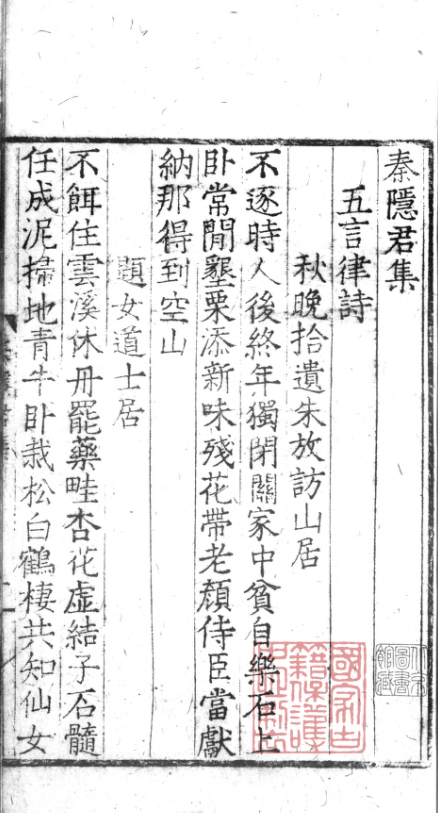 秦隱君集
五言律詩
秋晚拾遺朱放訪山居
不逐時人後終年獨閉關家中貧自樂石上
卧常閒墾栗添新味殘花帶老顏侍臣當獻
納那得到空山
題女道士居
不餌住雲溪休丹罷藥畦杏花虛結子石髓
任成泥掃地青牛卧栽松白鶴棲共知仙女
北京
圖書
館藏
國家古
籍保護